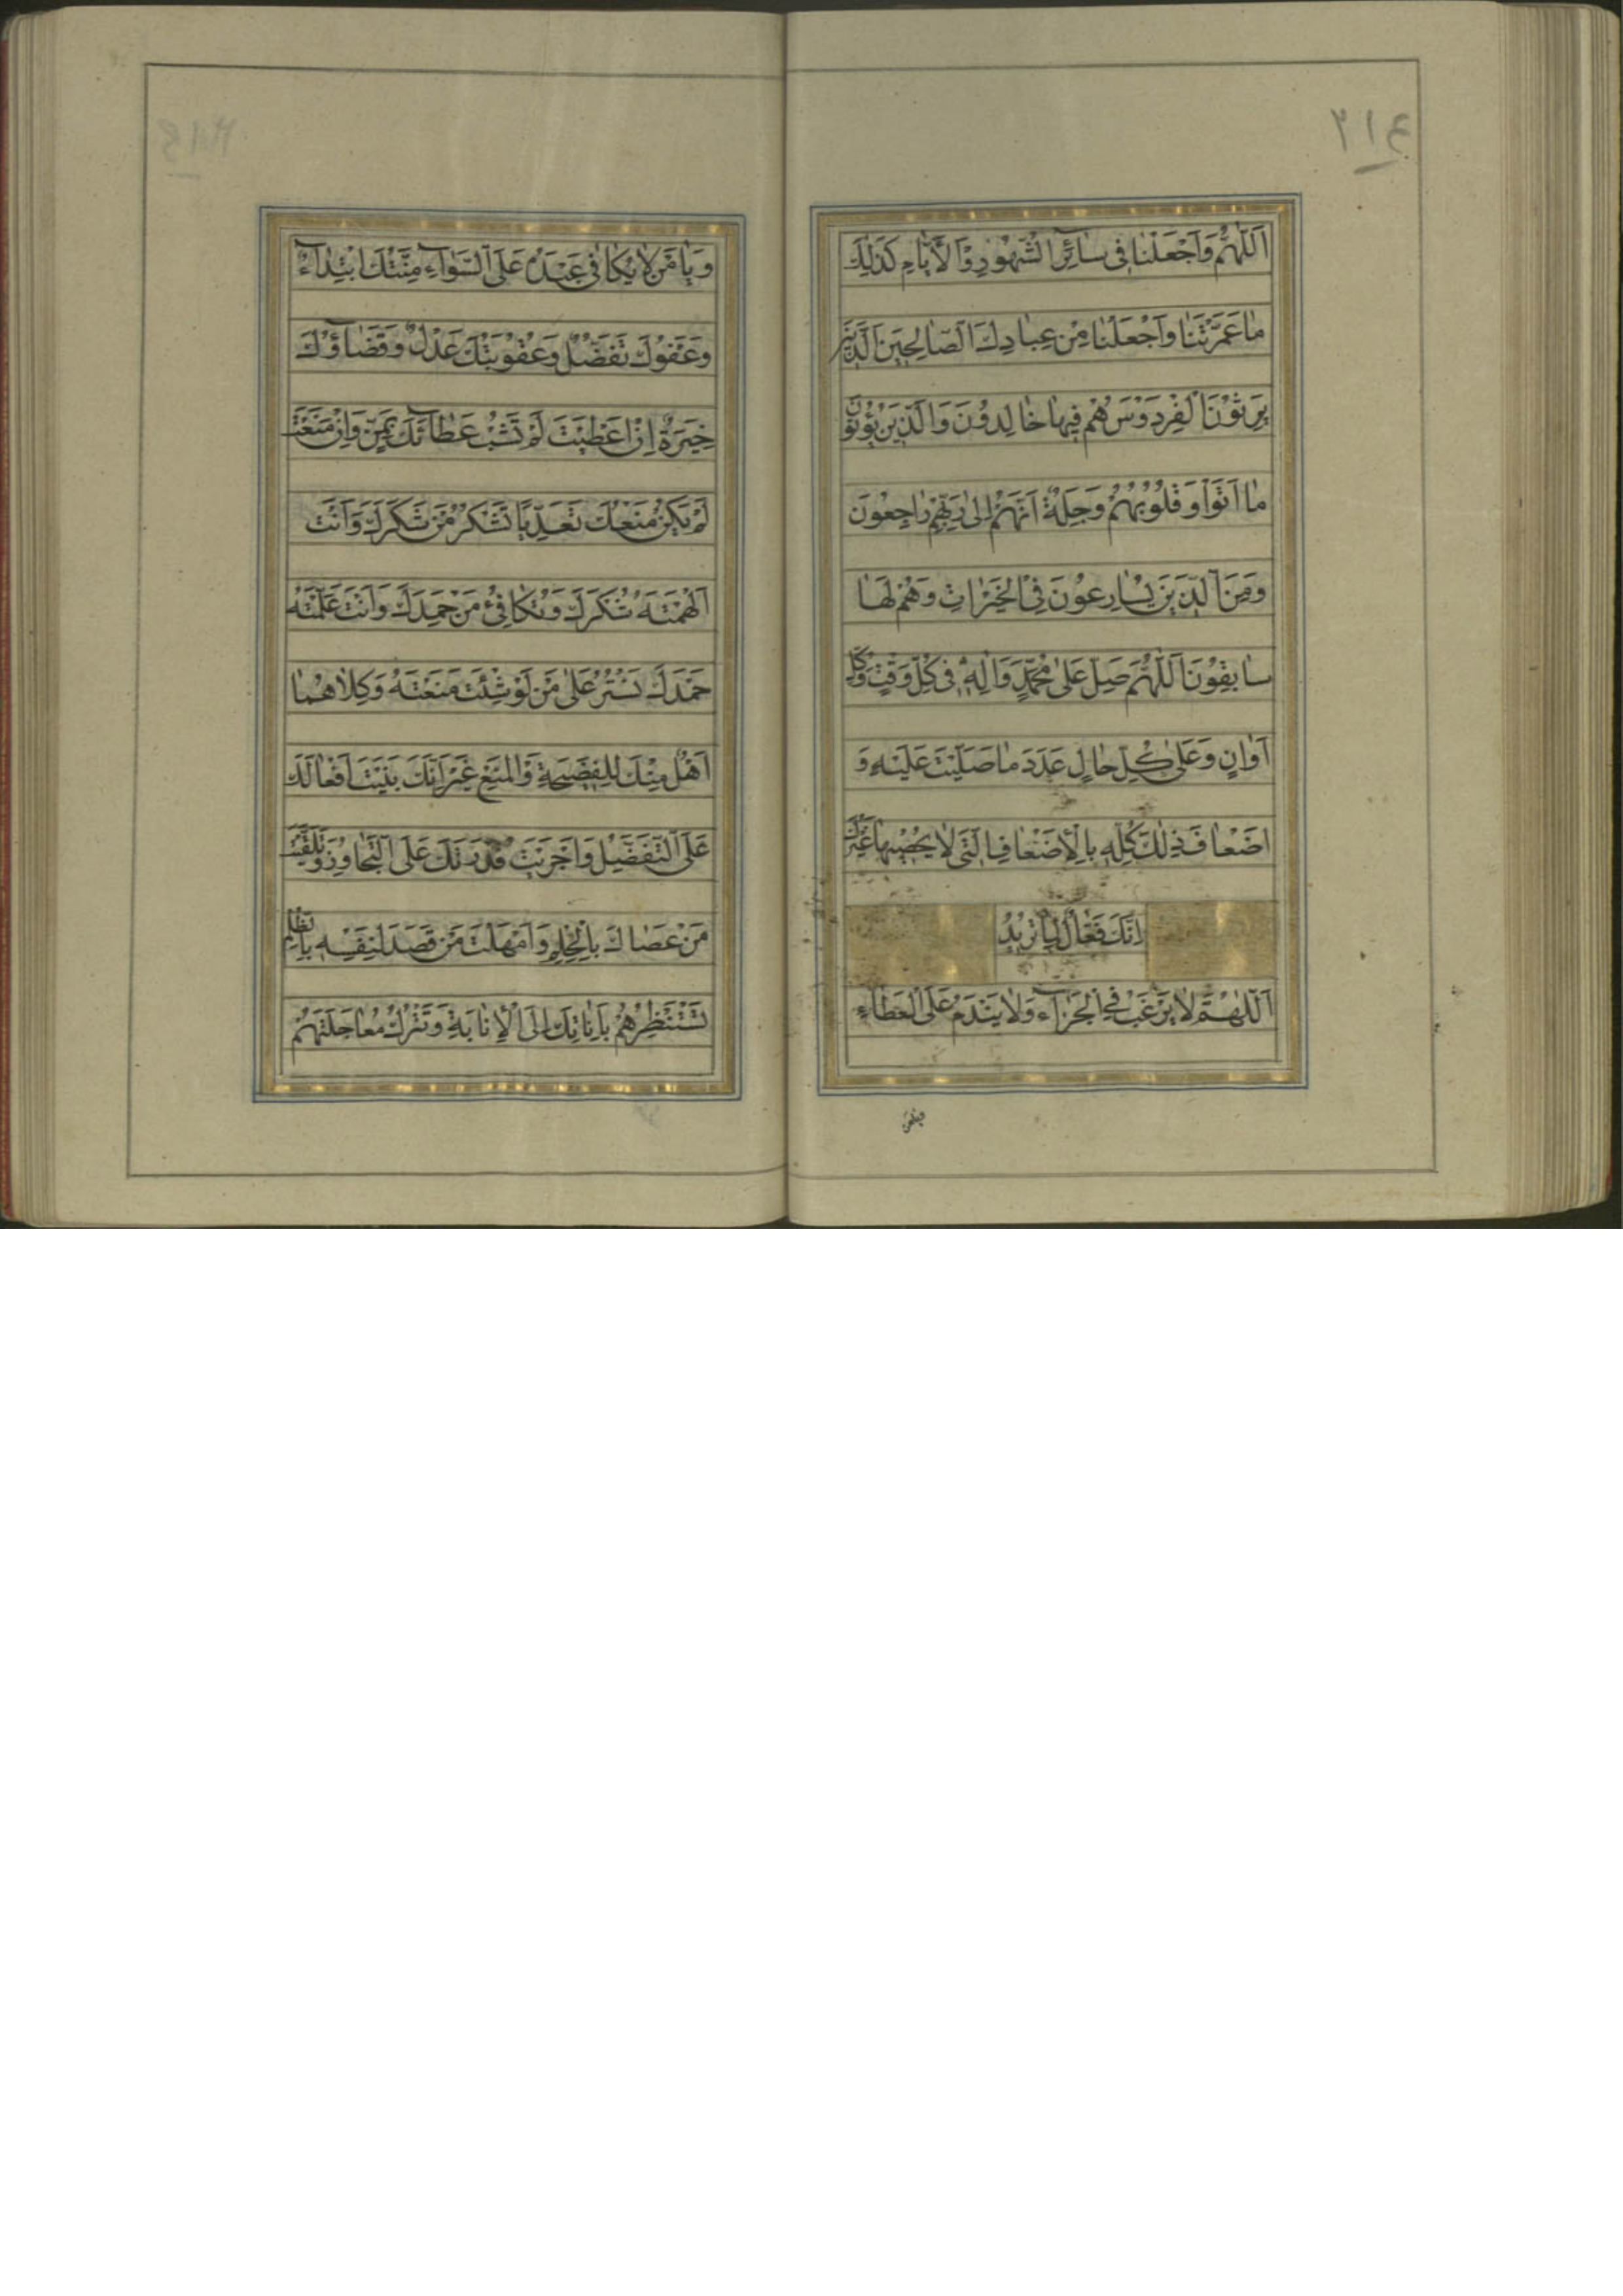 ۲۱۴
اَللّٰهُمَّ وَاجْعَلْنَا فِى سَائِرِ الشُّهُورِ وَالْاَيَّامِ كَذٰلِكَ
مٰا عَمَّرْتَنَا وَاجْعَلْنَا مِنْ عِبَادِكَ الصَّالِحِينَ الَّذِينَ
يَرِثُونَ الْفِرْدَوْسَ هُمْ فِيهَا خَالِدُونَ وَالَّذِينَ يُؤْتُونَ
مَا اٰتَوْا وَقُلُوبُهُمْ وَجِلَةٌ اَنَّهُمْ اِلىٰ رَبِّهِمْ رَاجِعُونَ
وَمِنَ الَّذِينَ يُسَارِعُونَ فِى الْخَيْرَاتِ وَهُمْ لَهَا
سَابِقُونَ اَللّٰهُمَّ صَلِّ عَلىٰ مُحَمَّدٍ وَاٰلِهِ فِى كُلِّ وَقْتٍ وَكُلِّ
اَوَانٍ وَعَلىٰ كُلِّ حَالٍ عَدَدَ مَا صَلَّيْتَ عَلَيْهِ وَ
اَضْعَافَ ذٰلِكَ كُلِّهِ بِالْاَضْعَافِ الَّتِى لَا يُحْصِيهَا غَيْرُكَ
اِنَّكَ فَعَّالٌ لِمَا تُرِيدُ
اَللّٰهُمَّ لَا يَرْغَبُ فِى الْجَزَاءِ وَلَا يَنْدَمُ عَلَى الْعَطَاءِ
وَيَا مَنْ لَا يُكَافِى عَبْدَهُ عَلَى السَّوَاءِ مِنَّتُكَ ابْتِدَاءٌ
وَعَفْوُكَ تَفَضُّلٌ وَعُقُوبَتُكَ عَدْلٌ وَقَضَاؤُكَ
خِيَرَةٌ اِنْ اَعْطَيْتَ لَمْ تَشُبْ عَطَائَكَ بِمَنٍّ وَاِنْ مَنَعْتَ
لَمْ يَكُنْ مَنْعُكَ تَعَدِّيًا تَشْكُرُ مَنْ شَكَرَكَ وَاَنْتَ
اَلْهَمْتَهُ شُكْرَكَ وَتُكَافِئُ مَنْ حَمِدَكَ وَاَنْتَ عَلَّمْتَهُ
حَمْدَكَ تَسْتُرُ عَلىٰ مَنْ لَوْ شِئْتَ مَنَعْتَهُ وَكِلَاهُمَا
اَهْلٌ مِنْكَ لِلْفَضِيحَةِ وَالْمَنْعِ غَيْرَ اَنَّكَ بَنَيْتَ اَفْعَالَكَ
عَلَى التَّفَضُّلِ وَاَجْرَيْتَ قُدْرَتَكَ عَلَى التَّجَاوُزِ وَتَلَقَّيْتَ
مَنْ عَصَاكَ بِالْحِلْمِ وَاَمْهَلْتَ مَنْ قَصَدَ لِنَفْسِهِ بِالظُّلْمِ
تَسْتَنْظِرُهُمْ بِاَنَاتِكَ اِلَى الْاِنَابَةِ وَتَتْرُكُ مُعَاجَلَتَهُمْ